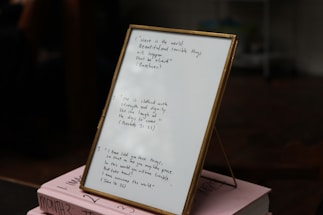 " Here is the world.
Beautiful and terrible things
will happen.
Don't be afraid."
(Buechner)
"She is clothed with
strength and dignity
she can laugh at
the days to come."
(Proverbs 31:25)
"I have told you these things,
so that in me you may have peace.
In this world you will have trouble.
But take heart!
I have overcome the world."
(John 16:33)